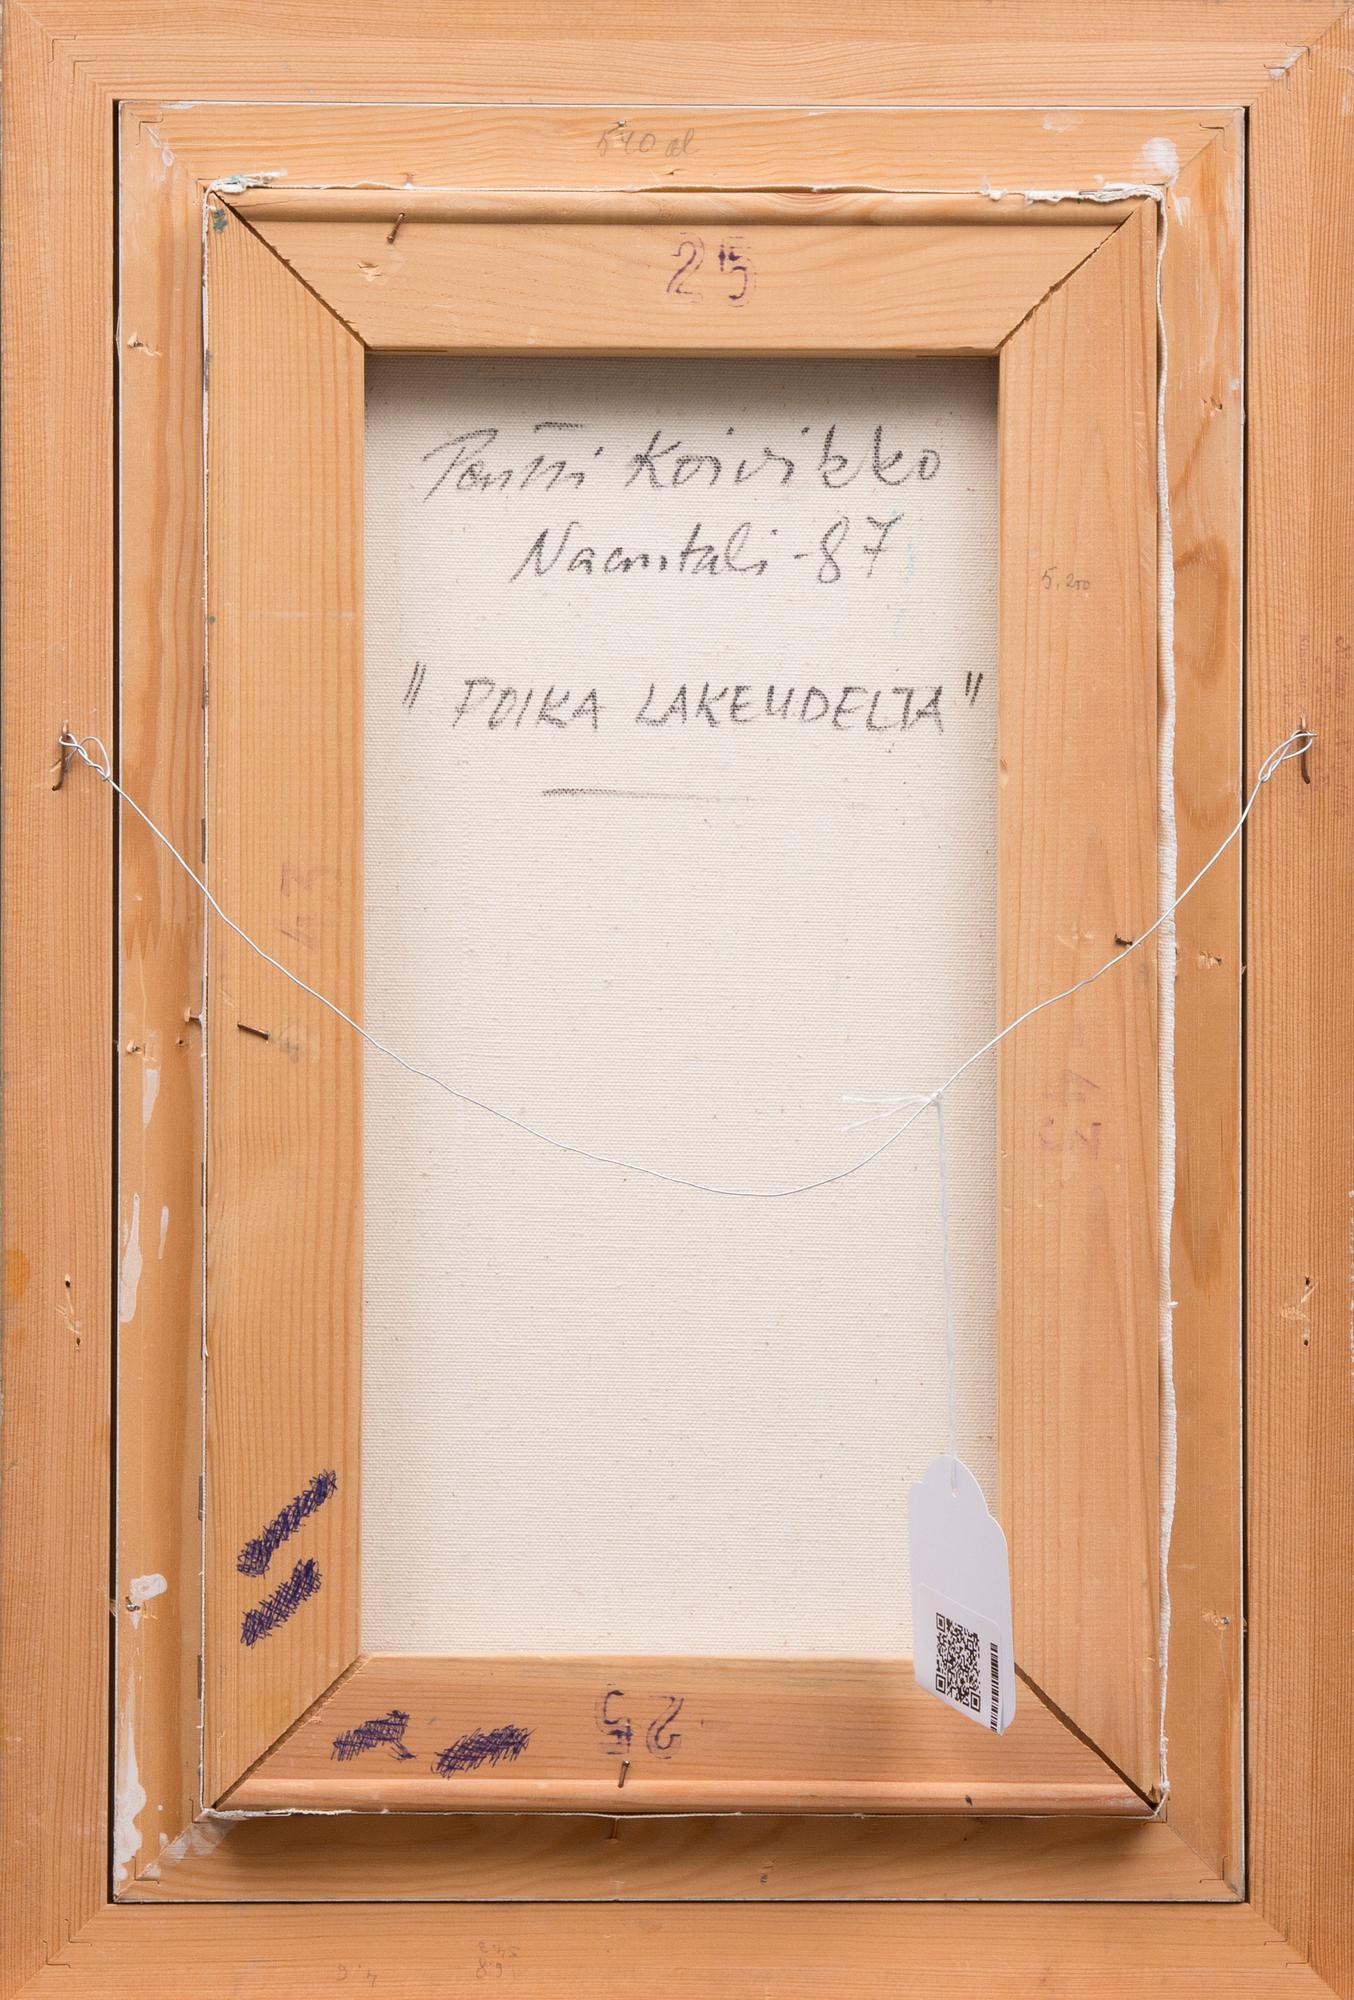 540
25
Pentti Koivikko
Naantali -87
5.200
" POIKA LAKEUDELTA"
43
43
25